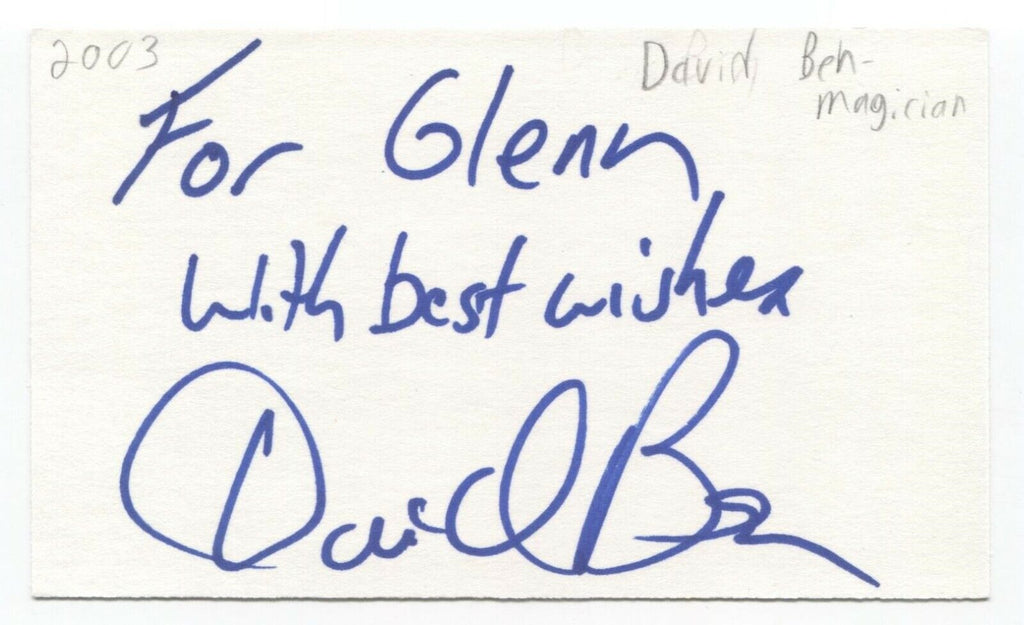 2003
David Ben-
magician
For Glenn
With best wishes
David Ben